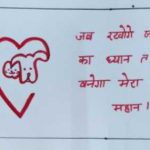 जब रखोगे
का ध्यान त
बनेगा मेरा
महान।